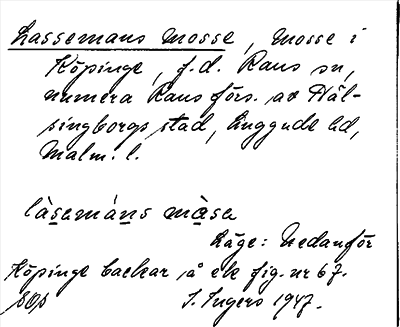 Lassemans mosse, Mosse i
Köpinge, f.d. Raus sn,
numera Raus förs. av Häl-
singborgs stad, Luggude hd,
Malm. l.
làsemáns màsa
Läge: Nedanför
Köpinge backar, å ek fig. nr 67.
I. Ingers 1947.